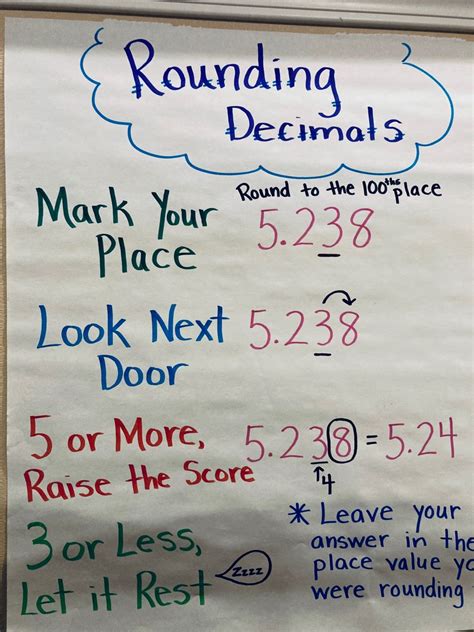 Rounding
Decimals
Round to the 100ths place
Mark Your
Place
5.238
Look Next
Door
5.238
5 or More,
Raise the Score
5.238 = 5.24
↑4
3 or Less,
Let it Rest
Zzzz
* Leave your
answer in the
place value
were rounding